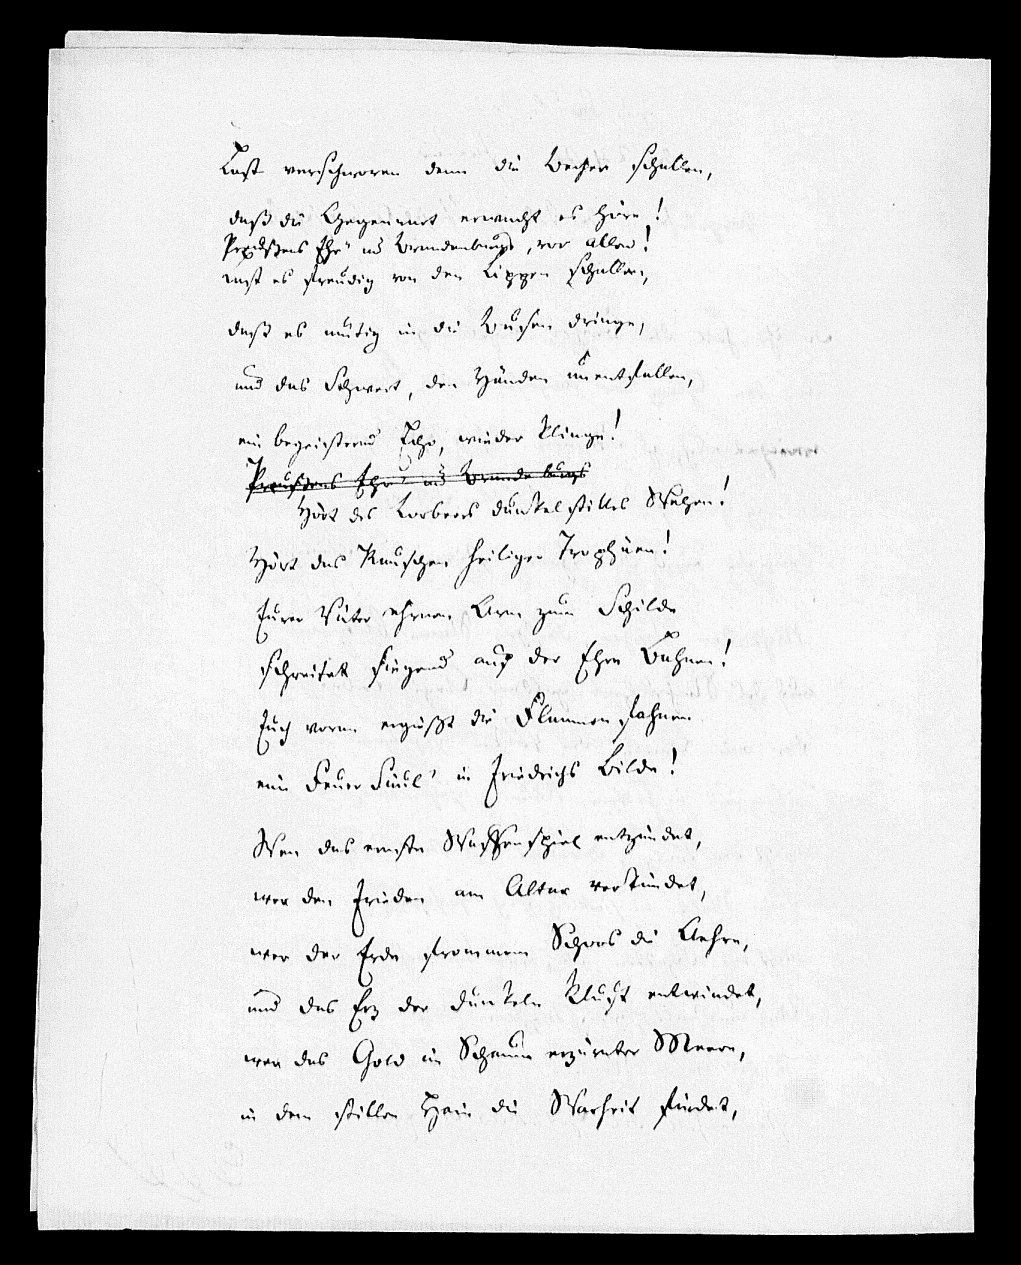 Laßt verschworen denn die Becher schallen,
daß die Gegenwart erwacht es höre!
Preußens Ehr' und Brandenburgs, vor allen!
laßt es freudig von den Lippen schallen,
daß es mutig in die Busen dringe,
und das Schwert, den Händen unentfallen,
ein begeisternd Echo, wieder klinge!
Preußens Ehre und Brandenburgs
Hört des Lorbeers dunkelstilles Wehen!
Hört das Rauschen heiliger Trophäen!
Eurer Väter ehrnen Arm zum Schilde
schreitet siegend auf der Ehre Bahnen!
Euch voran ergießt die Flammenfahnen
eine Feuer Säul' in Friedrichs Bilde!
Wen das ernste Waffenspiel entzündet,
wer den Frieden am Altar verkündet,
wer der Erde frommem Schoos die Aehre,
und das Erz der dunkeln Kluft entwindet,
wer das Gold im Schaum erzürnter Meere,
in dem stillen Hain die Warheit findet,